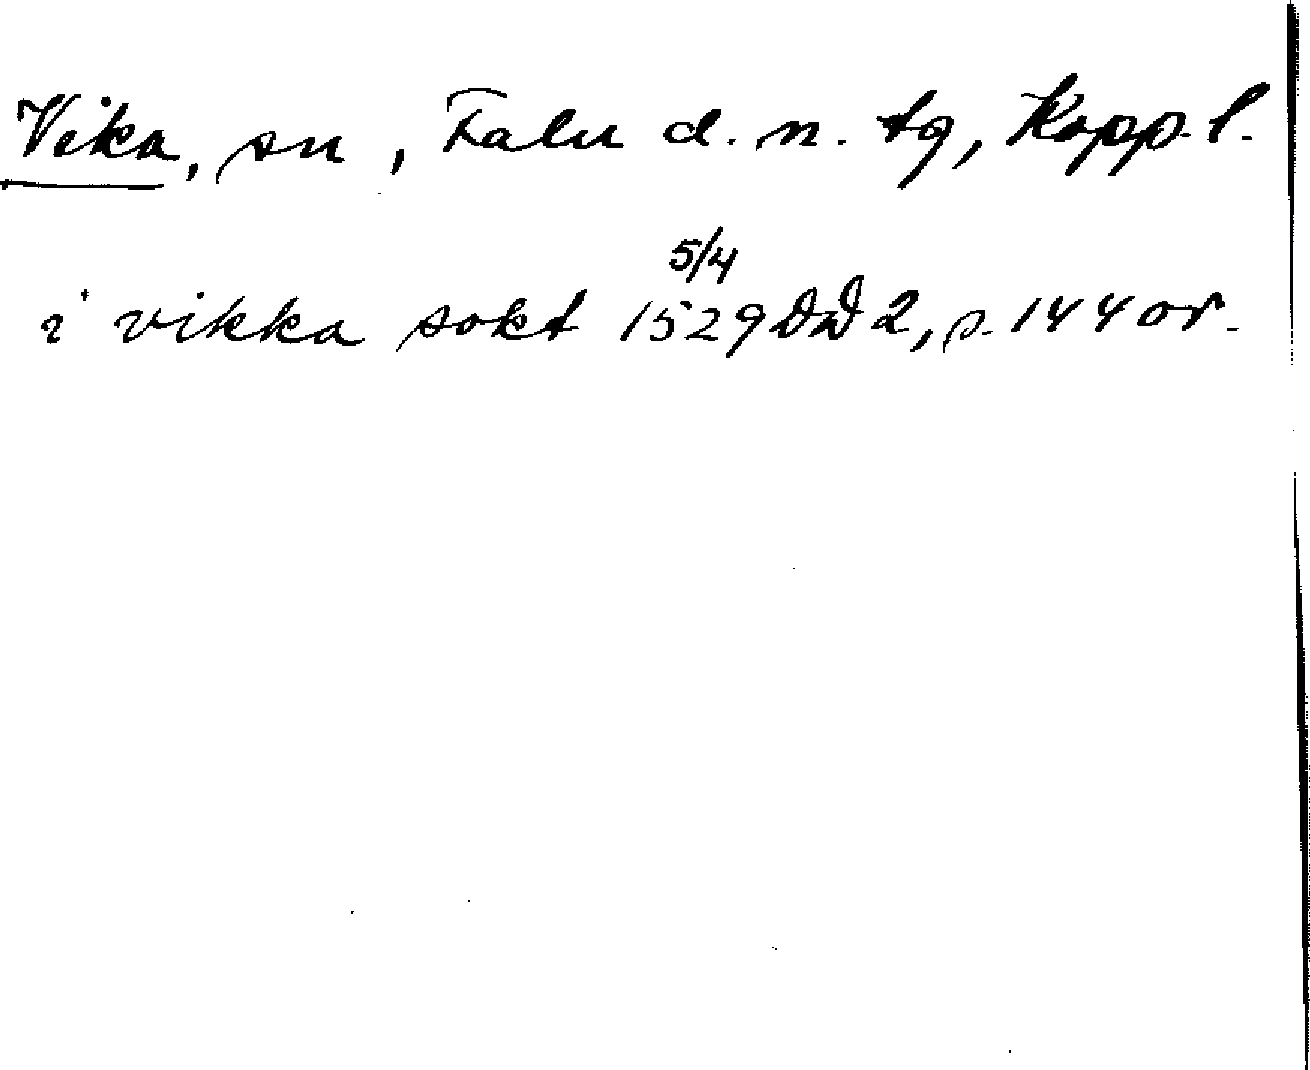 Vika, sn, Falu d. n. tg, Kopp. l.
5/4
i vikka sokt 1529 DD 2, s. 144 or.